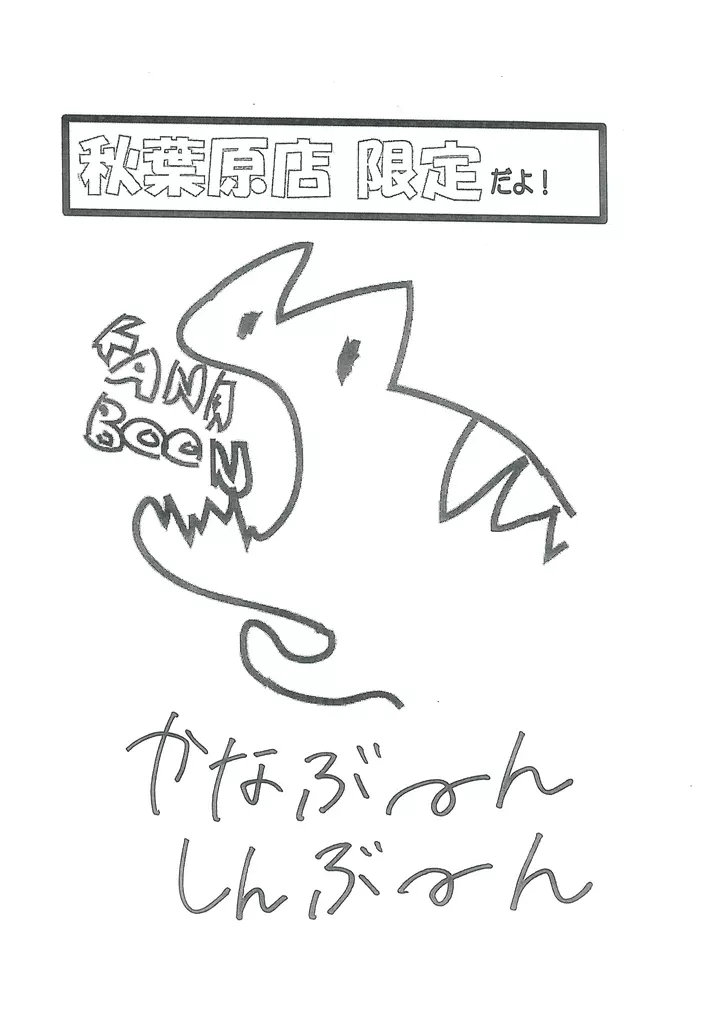 秋葉原店 限定だよ!
KANA
BOON
かなぶーん
しんぶーん